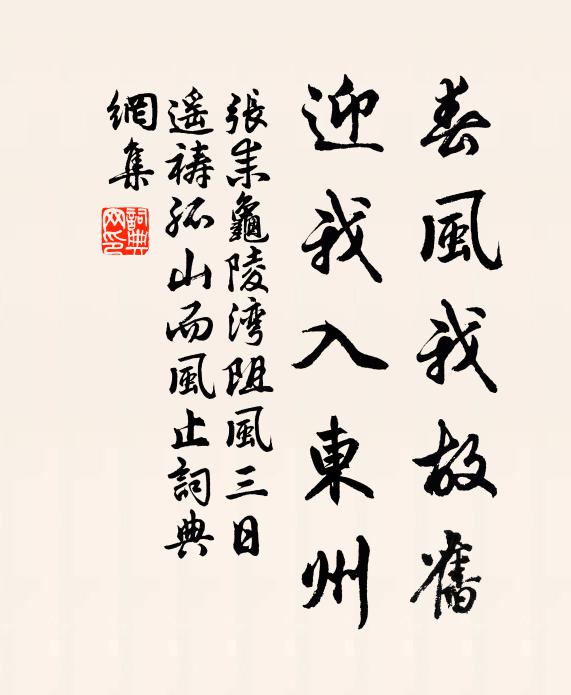 春風我故舊
迎我入東州
張耒龜陵湾阻風三日
遥禱孤山而風止詞典
網集
詞典网印